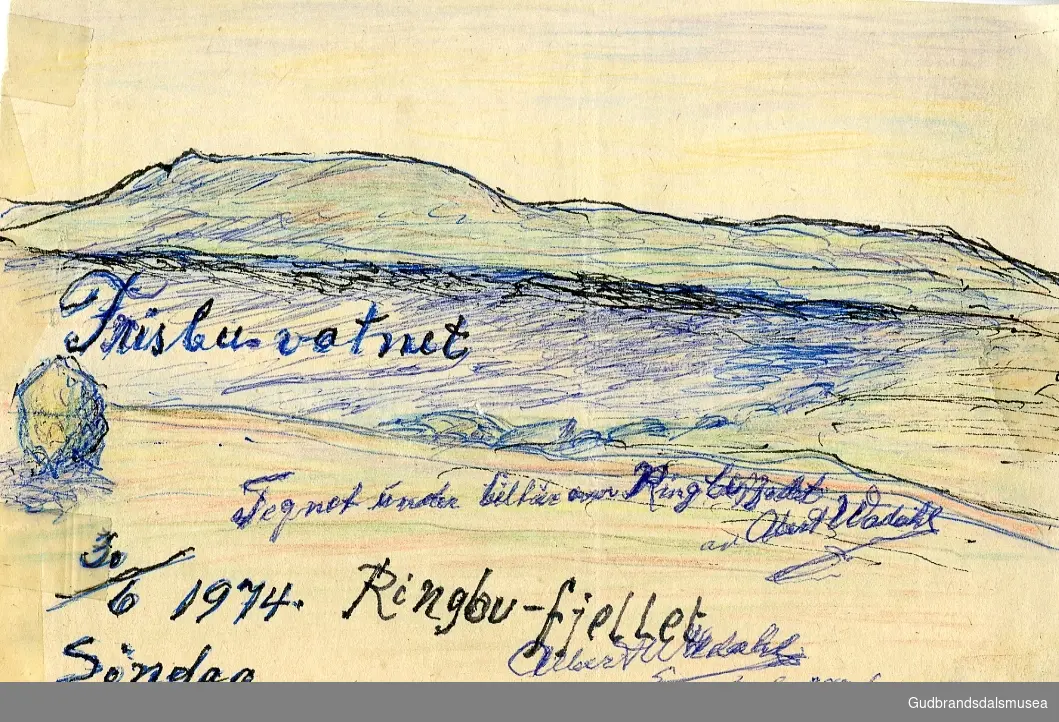 Frisbu-vatnet
Tegnet under biltur over Ringbufjellet
av Albert Wadahl
30/6 1974. Ringbu-fjellet
Albert Wadahl
Søndag
Gudbrandsdalsmusea